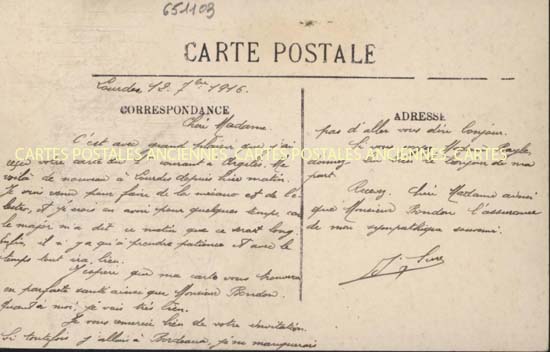 651103
CARTE POSTALE
Lourdes 12. 7bre 1916.
CORRESPONDANCE
Chère Madame.
C'est avec grand
CARTES POSTALES ANCIENNES CARTES POSTALES ANCIENNES CARTES POSTALES ANCIENNES
votre carte Argelès. Me
voilà de nouveau à Lourdes depuis hier matin.
Je suis venu pour faire de la mécano et de l'é-
lectro, et je crois en avoir pour quelques temps, car
le major m'a dit ce matin que ce serait long.
Enfin, il n'y a qu'à prendre patience et avec le
temps tout ira bien.
J'espère que ma carte vous trouvera
en parfaite santé ainsi que Monsieur Bondon.
Quant à moi, je vais très bien.
Je vous remercie bien de votre invitation.
Si toutefois j'allais à Bordeaux, je ne manquerais
ADRESSE
pas d'aller vous dire bonjour.
bien le bonjour de ma
part.
Recevez, chère Madame ainsi
que Monsieur Bondon l'assurance
de mon sympathique souvenir.